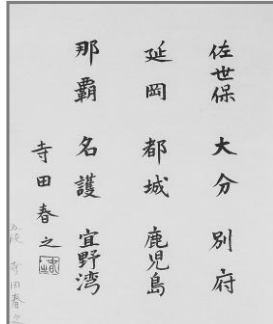 佐世保 大分 別府
延岡 都城 鹿児島
那覇 名護 宜野湾
寺田春之
寺田春之